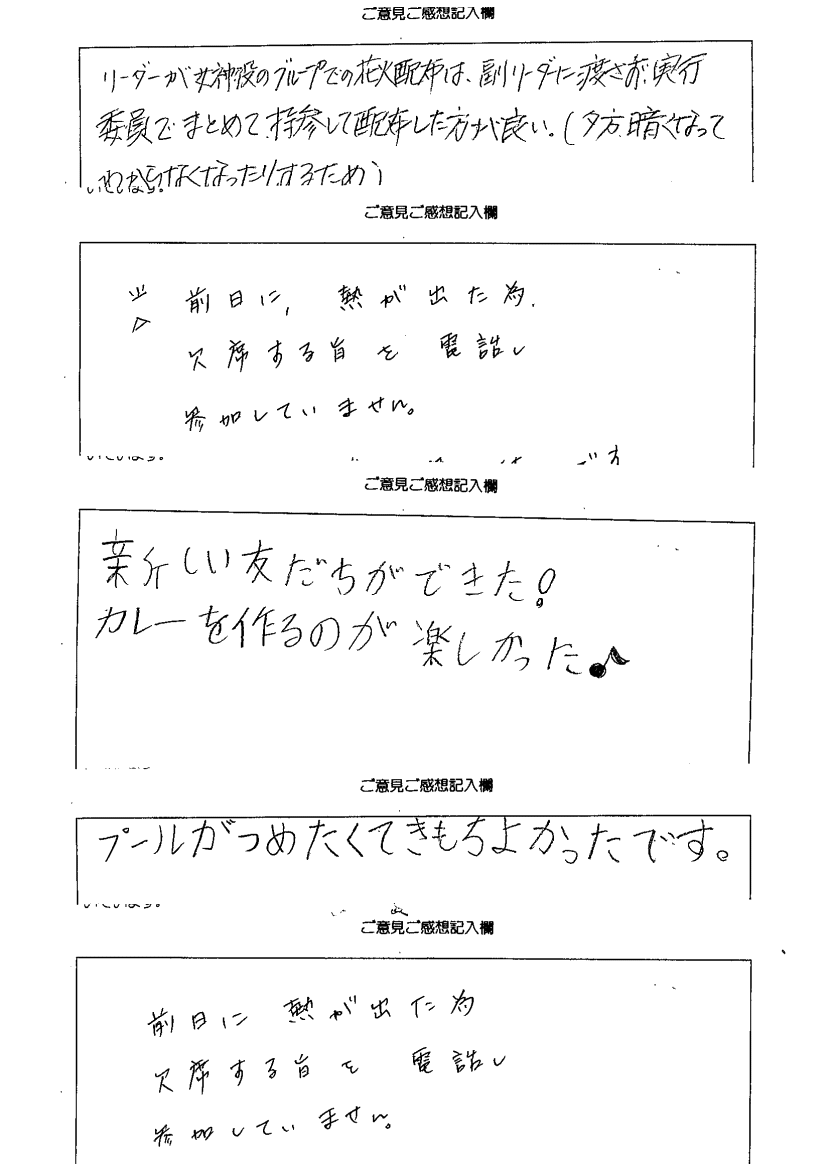 ご意見ご感想記入欄
リーダーが女神役のグループでの花火配布は、副リーダーに渡さず、実行
委員でまとめて持参して配布した方が良い。(夕方、暗くなって
わからなくなったりするため)
ご意見ご感想記入欄
前日に、熱が出た為、
欠席する旨を電話し
参加していません。
ご意見ご感想記入欄
新しい友だちができた!
カレーを作るのが楽しかった♪
ご意見ご感想記入欄
プールがつめたくてきもちよかったです。
ご意見ご感想記入欄
前日に熱が出た為
欠席する旨を電話し
参加していません。